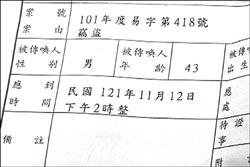 案號 101年度易字第418號
案由 竊盜
被傳喚人性別 男 被傳喚人年齡 43 被傳
出生
應到時間 民國 121年11月12日
下午2時整
應
處
備註 待證
事
附